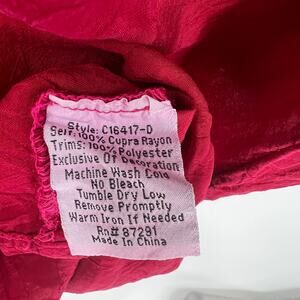 Style: C16417-D
Self: 100% Cupra Rayon
Trims: 100% Polyester
Exclusive Of Decoration
Machine Wash Cold
No Bleach
Tumble Dry Low
Remove Promptly
Warm Iron If Needed
Rn# 87291
Made In China